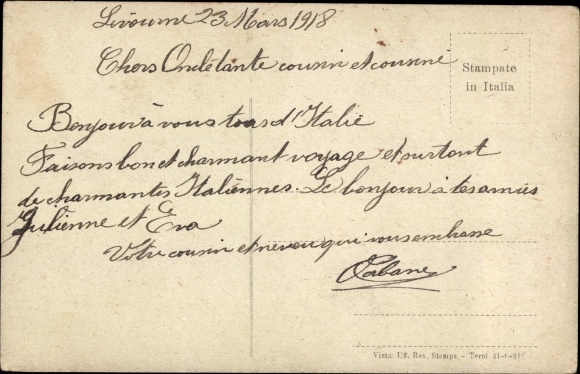 Livourne 23 Mars 1918
Chers Oncle tante cousin et cousine
Stampate
in Italia
Bonjour à vous tous d'Italie
Faisons bon et charmant voyage et surtout
de charmantes Italiennes. Le bonjour à tes amies
Julienne et Eva
Votre cousin et neveu qui vous embrasse
Cabane
Visto: Uff. Rev. Stampa. - Terni